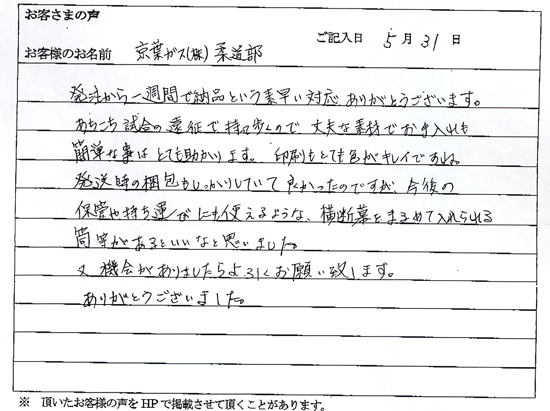 お客さまの声
ご記入日 5月31日
お客様のお名前 京葉ガス(株)柔道部
発注から一週間で納品という素早い対応ありがとうございます。
あちこち試合の遠征で持ち歩くので、丈夫な素材でお手入れも
簡単な事はとても助かります。印刷もとても色がキレイですね。
発送時の梱包もしっかりしていて良かったのですが、今後の
保管や持ち運びにも使えるような、横断幕をまるめて入れられる
筒等があるといいなと思いました。
又、機会がありましたらよろしくお願い致します。
ありがとうございました。
※ 頂いたお客様の声をHPで掲載させて頂くことがあります。